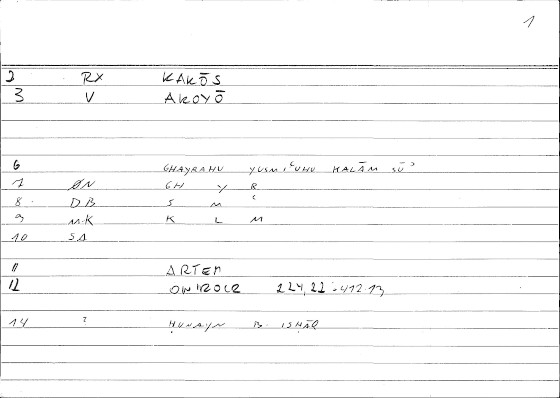 1
2 RX KAKŌS
3 V AKOYŌ
6 GHAYRAHU YUSMIʿUHU KALĀM SŪʾ
7 ØN GH Y R
8 DB S M ʿ
9 MK K L M
10 SA
11 ARTEM
12 ONIROCR 224,22-412.13
14 ? ḤUNAYN B. ISḤĀQ